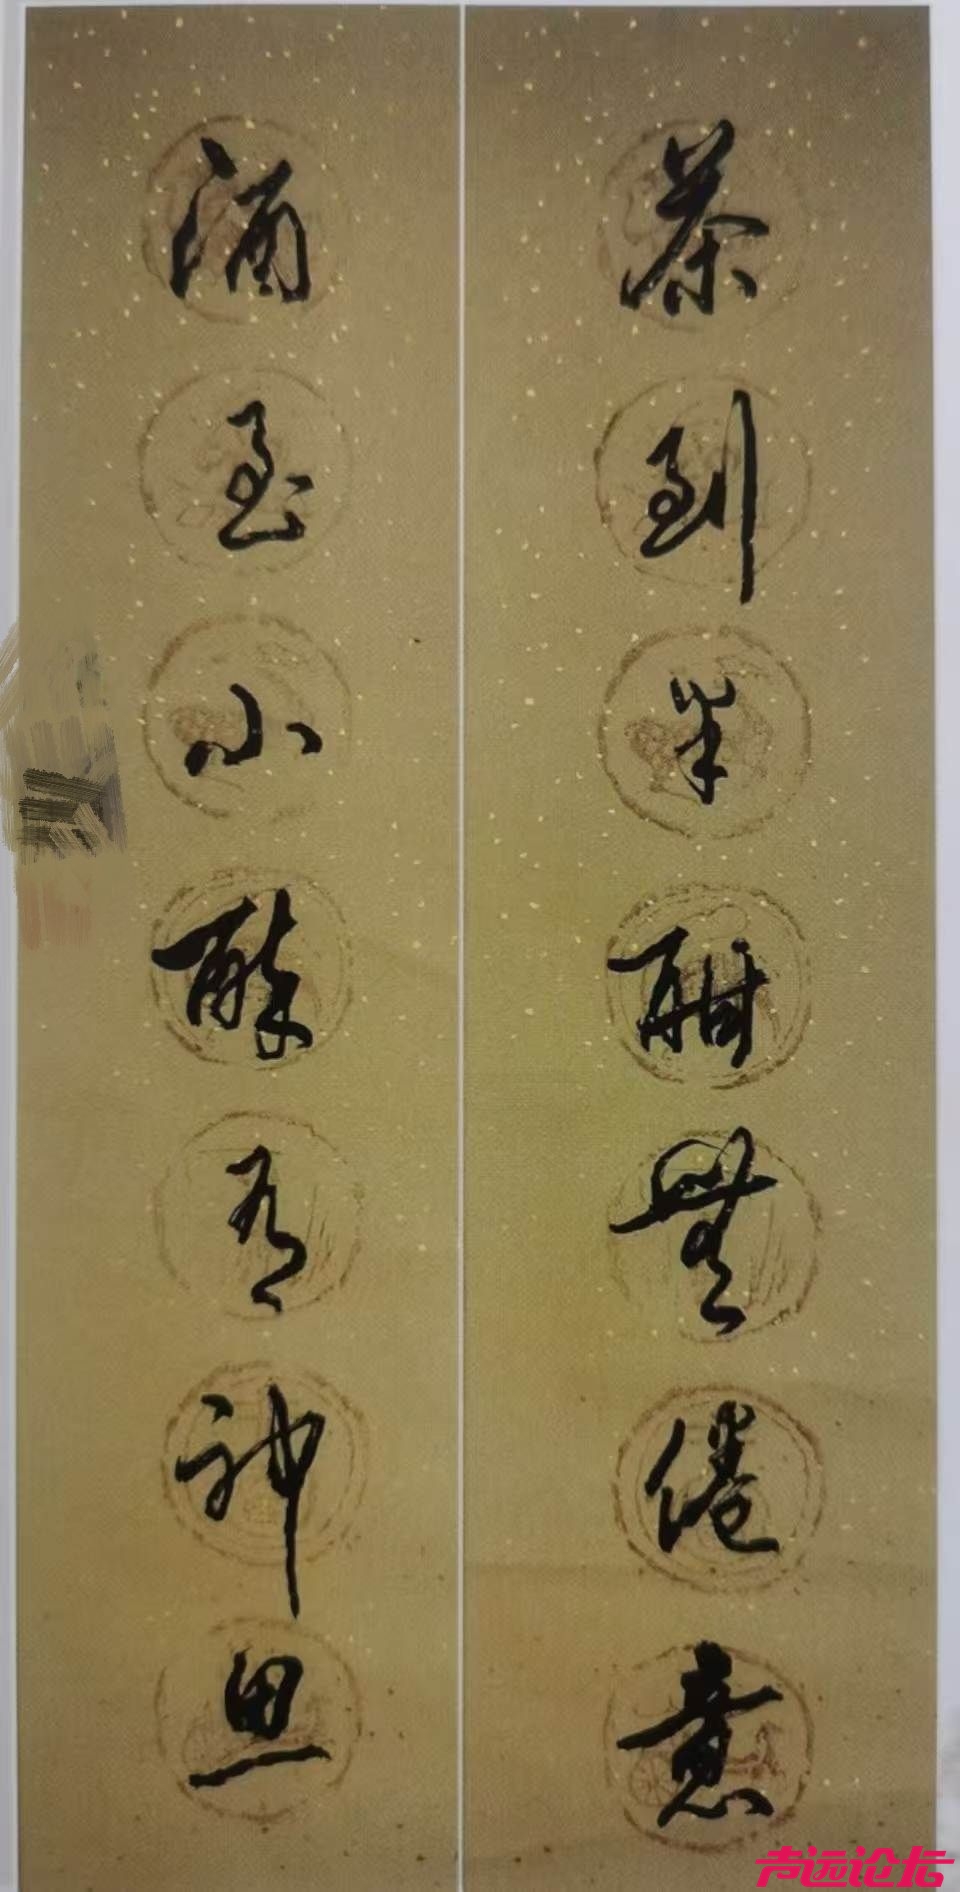 茶到半酣無倦意
酒至小醉有神思
声远论坛